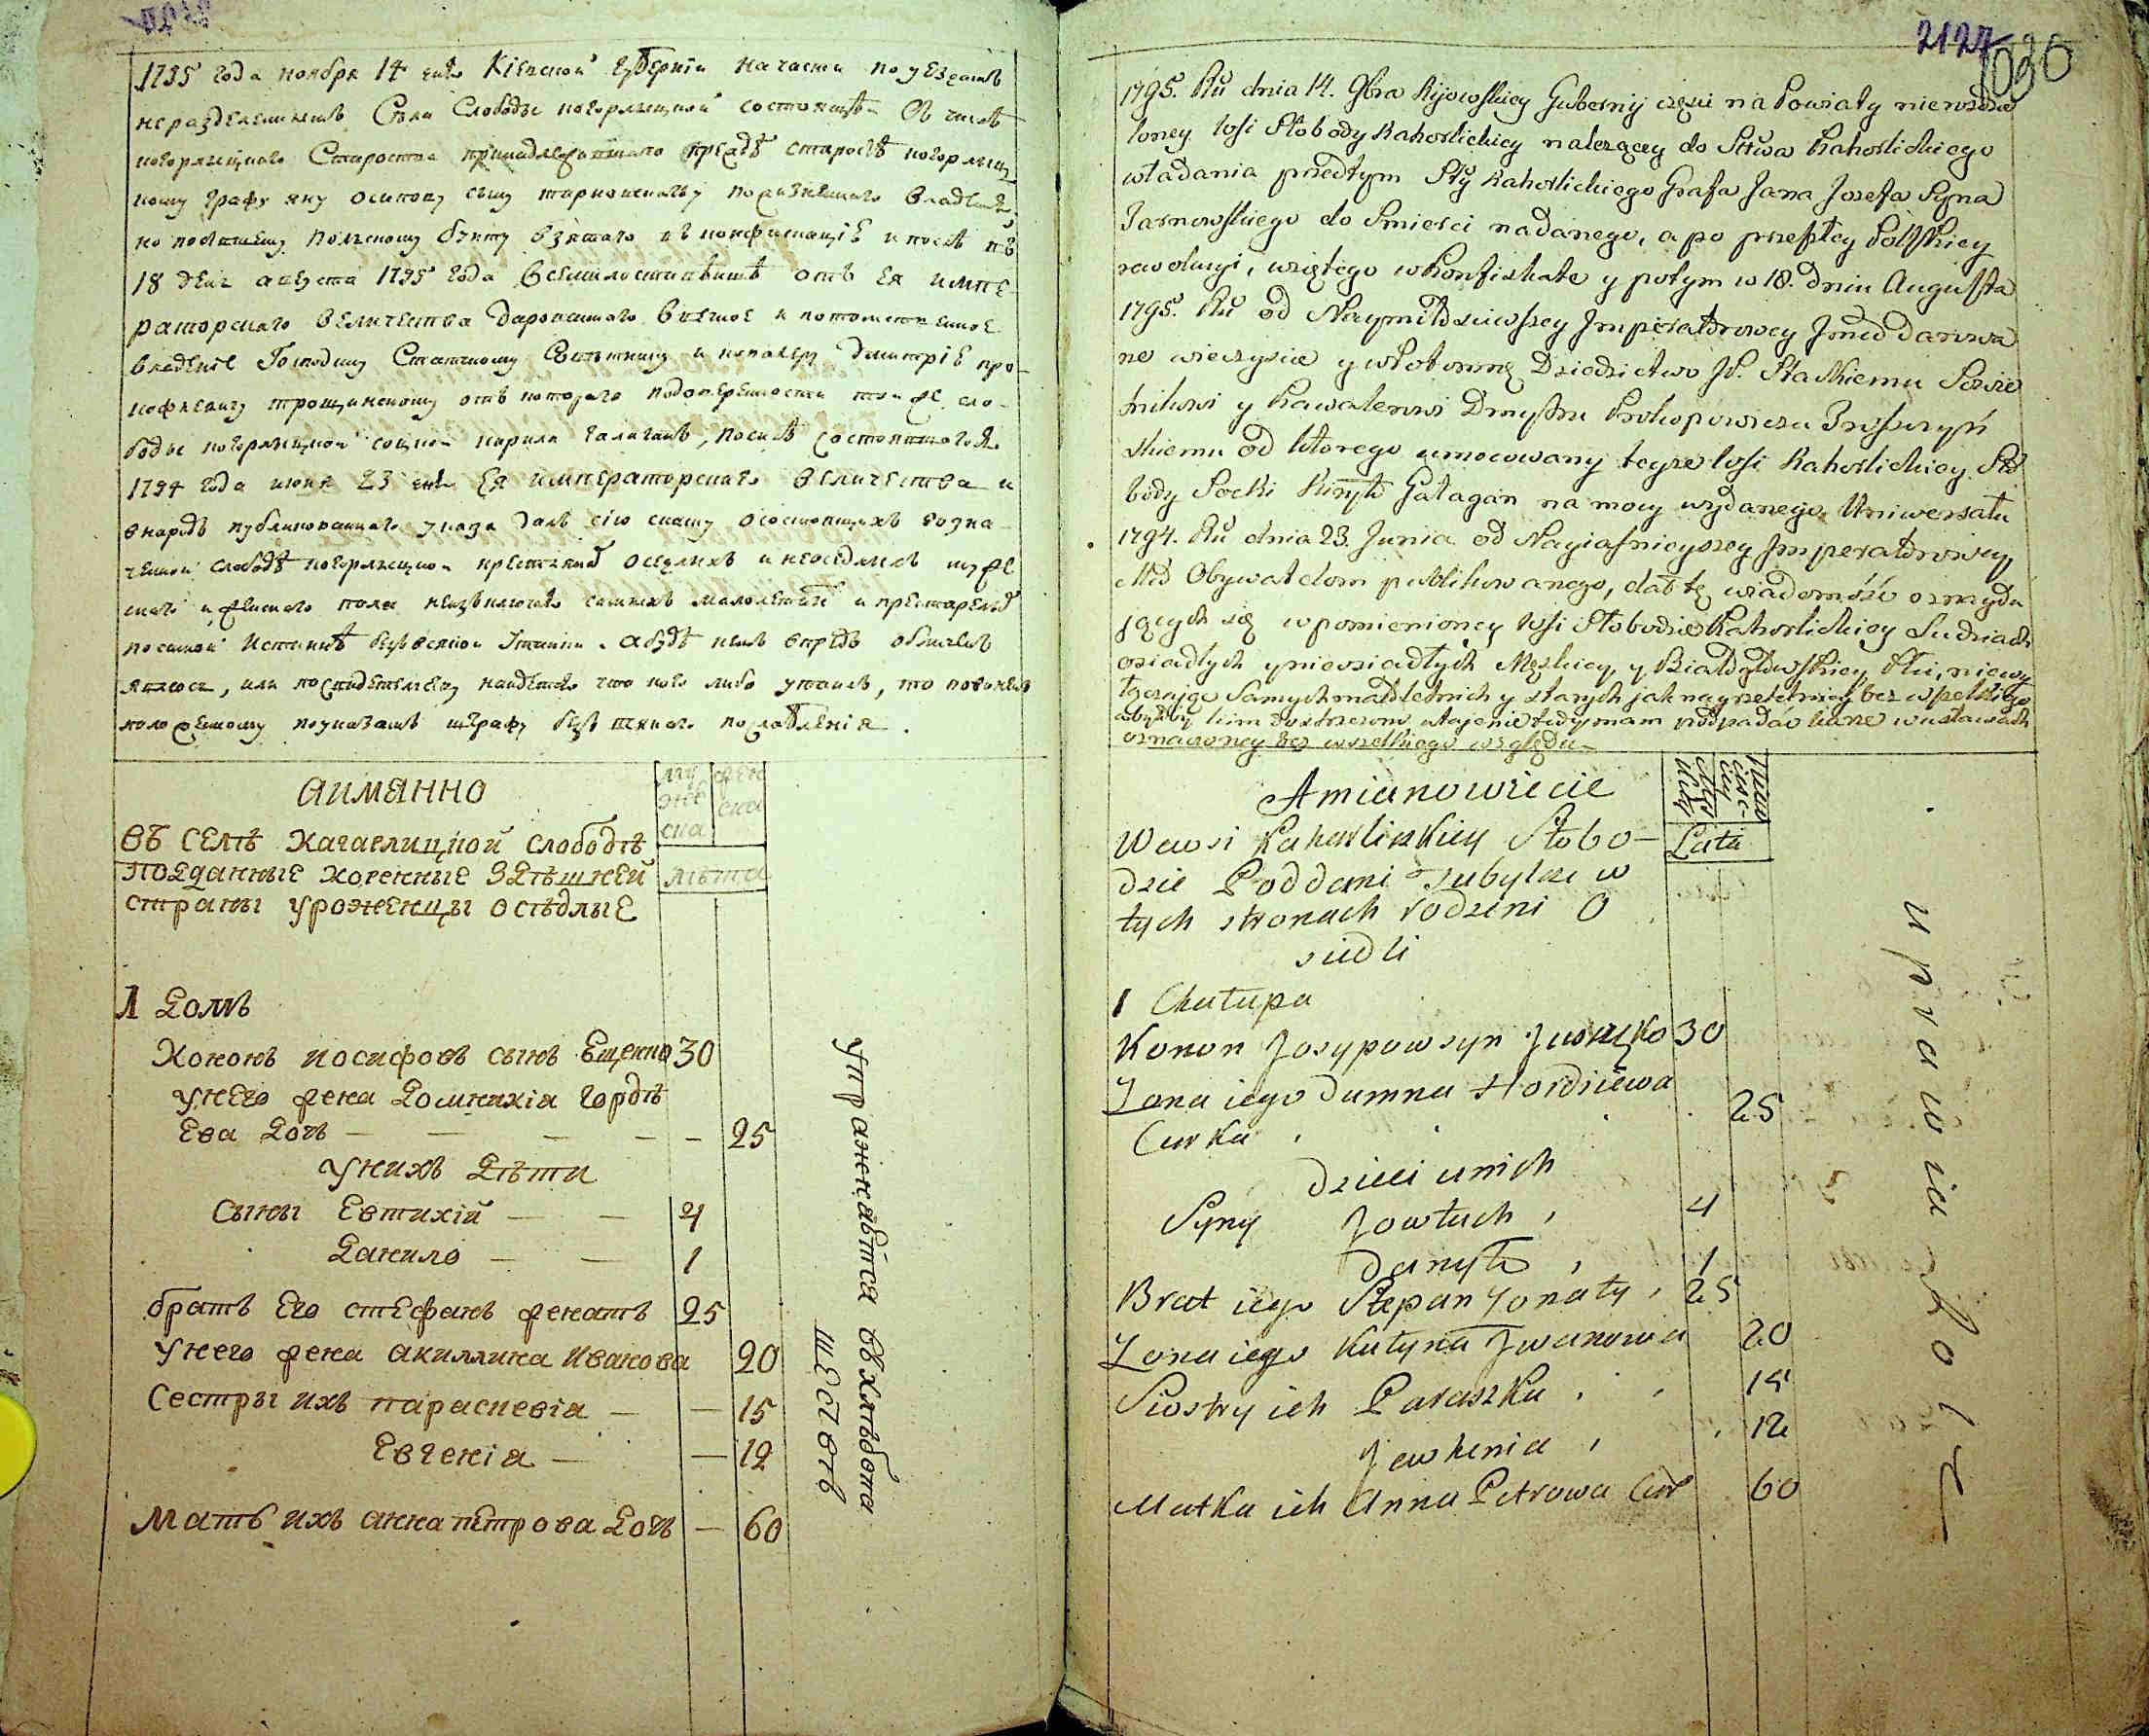 1795 года ноября 14 дня Кіевской Губерніи на части по уездамъ
нераздѣленныхъ Села Слободы когорлыцкой состоящей въ числѣ
когорлыцкаго Староства принадлежавшаго предъ старостѣ когорлыц
кому графу яну осипову сыну тарновскому пожизненнаго владѣния
но по бывшему польскому бунту взятаго въ конфискацію и послѣ въ
18 день августа 1795 года всемилостивѣйше отъ Ея импе-
раторскаго величества дарованнаго въ вечное и потомственное
владеніе Господину Статскому Советнику и кавалеру Дмитріе про-
кофьевичу трощинскому отъ котораго подоверенности той же сло-
боды когорлыцкой соцкой кирила галаганъ, по силѣ состоявшагося
1794 года июня 23 дня Ея императорскаго величества и
внародъ публикованнаго указа далъ сію скаску осостоящихъ возна-
ченной слободѣ когорлыцкой крестьянъ оседлыхъ и неоседлыхъ муже
ска и женскаго пола неизключая самыхъ малолетныхъ и престарелыхъ
по самой истинѣ безъ всякой утайки. а будѣ кемъ впредь обличенъ
явлюсь, или по свидетельству найдется что кого либо утаилъ, то повиненъ
положенному по указамъ штрафу безъ всякаго послабленія.
аимянно
му
жес
ска
жен
ска
въ селѣ кагарлицкой слободѣ
подданные коренные здѣшней
лѣта
страны уроженцы осѣдлые
1 домъ
Кононъ иосифовъ сынъ Ещенко 30
унего жена домникія гордѣ
ева дочь — — — — 25
унихъ дѣти
Сыны Евтихій — — 4
Данило — — 1
братъ его стефанъ женатъ 25
унего жена акиллина иванова 20
Сестры ихъ параскевія — — 15
Евгенія — — 12
Мать ихъ анна петрова дочь — 60
упражняются въ хлѣбопа
шествѣ
2127
1030
1795. Ru dnia 14. 9bra Kijowskiey Gubernij części na Powiaty nierozdzie
loney Wsi Słobody Kahorlickiey należącey do Sttwa Kahorlickiego
władania przedtym Stty Kahorlickiego Grafa Jana Jozefa Syna
Tarnowskiego do Smierci nadanego, a po przeszłey Polskiey
rewolucyi, wziętego w Konfiskate y potym w 18. dniu Augusta
1795. Ru od Naymiłościwszey Imperatorowey Jmci darowa
ne wieczyste y w Potomne Dziedzictwo JP. Statskiemu Sowie
tnikowi y Kawalerowi Dmytru Prokopowiczu Troszczyń
skiemu od ktorego umocowany teyże Wsi Kahorlickiey Sło
body Socki Kiryło Gałagan na mocy wydanego Uniwersału
1794. Ru dnia 23. Junia od Nayiaśnieyszey Imperatorowey
Mci Obywatelom publikowanego, dał tę wiadomość o znaydu
jących się w pomienioney Wsi Słobodzie Kahorlickiey Ludziach
osiadłych y nieosiadłych Męzkiey y Białogłowskiey Płci, niewy
łączając samych małoletnich y starych jak nayrzetelniey bez wszelkiego
oznaczoney bez wszelkiego względu
Amianowicie
Męż
Lata
We wsi Kahorlickiey Słobo-
dzie Poddani Zubylcze w
tych stronach rodzeni O
siedli
1 Chałupa
Konon Josypow syn Juszczko 30
Zona iego Dumna Hordiiewa
Curka . 25
Dzieci u nich
Syny Jowtuch , 4
Danyło , 1
Brat iego Stepan Zonaty , 25
Zona iego Kutyna Jwanowa 20
Siostry ich Paraszka , 15
Jewhenia , 12
Matka ich Anna Petrowa Cur 60
uprawia Rolę